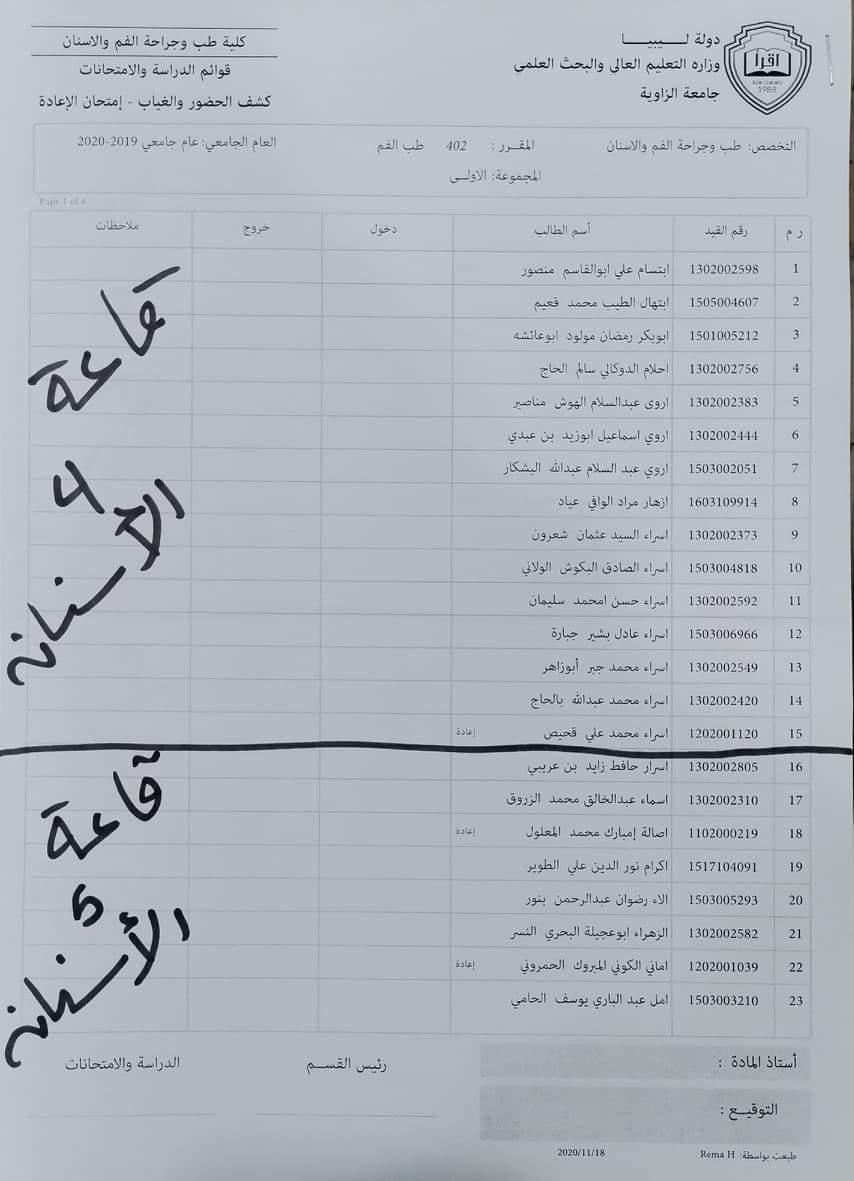 دولة لـــــيبيـــــا
وزاره التعليم العالي والبحث العلمى
جامعة الزاوية
اقرأ
1988
كلية طب وجراحة الفم والاسنان
قوائم الدراسة والامتحانات
كشف الحضور والغياب - إمتحان الإعادة
التخصص: طب وجراحة الفم والاسنان المقـــرر : 402 طب الفم العام الجامعي: عام جامعي 2019-2020
المجموعة: الاولـــى
Page 1 of 6
ر م رقم القيد أسم الطالب دخول خروج ملاحظات
1 1302002598 ابتسام علي ابوالقاسم منصور
2 1505004607 ابتهال الطيب محمد قعيم
3 1501005212 ابوبكر رمضان مولود ابوعائشه
4 1302002756 احلام الدوكالي سالم الحاج
5 1302002383 اروى عبدالسلام الهوش مناصير
6 1302002444 اروي اسماعيل ابوزيد بن عبدي
7 1503002051 اروي عبد السلام عبدالله البشكار
8 1603109914 ازهار مراد الوافي عياد
9 1302002373 اسراء السيد عثمان شعرون
10 1503004818 اسراء الصادق البكوش الولاني
11 1302002592 اسراء حسن امحمد سليمان
12 1503006966 اسراء عادل بشير جبارة
13 1302002549 اسراء محمد جبر أبوزاهر
14 1302002420 اسراء محمد عبدالله بالحاج
15 1202001120 اسراء محمد علي قحيص إعادة
قاعة
4
الأسنان
16 1302002805 اسرار حافظ زايد بن عريبي
17 1302002310 اسماء عبدالخالق محمد الزروق
18 1102000219 اصالة إمبارك محمد المعلول إعادة
19 1517104091 اكرام نور الدين علي الطوير
20 1503005293 الاء رضوان عبدالرحمن بنور
21 1302002582 الزهراء ابوعجيلة البحري النسر
22 1202001039 اماني الكوني المبروك الحمروني إعادة
23 1503003210 امل عبد الباري يوسف الحامي
قاعة
5
الأسنان
أستاذ المادة : رئيس القســـم الدراسة والامتحانات
التوقيـــع :
طبعت بواسطة: Rema H 2020/11/18